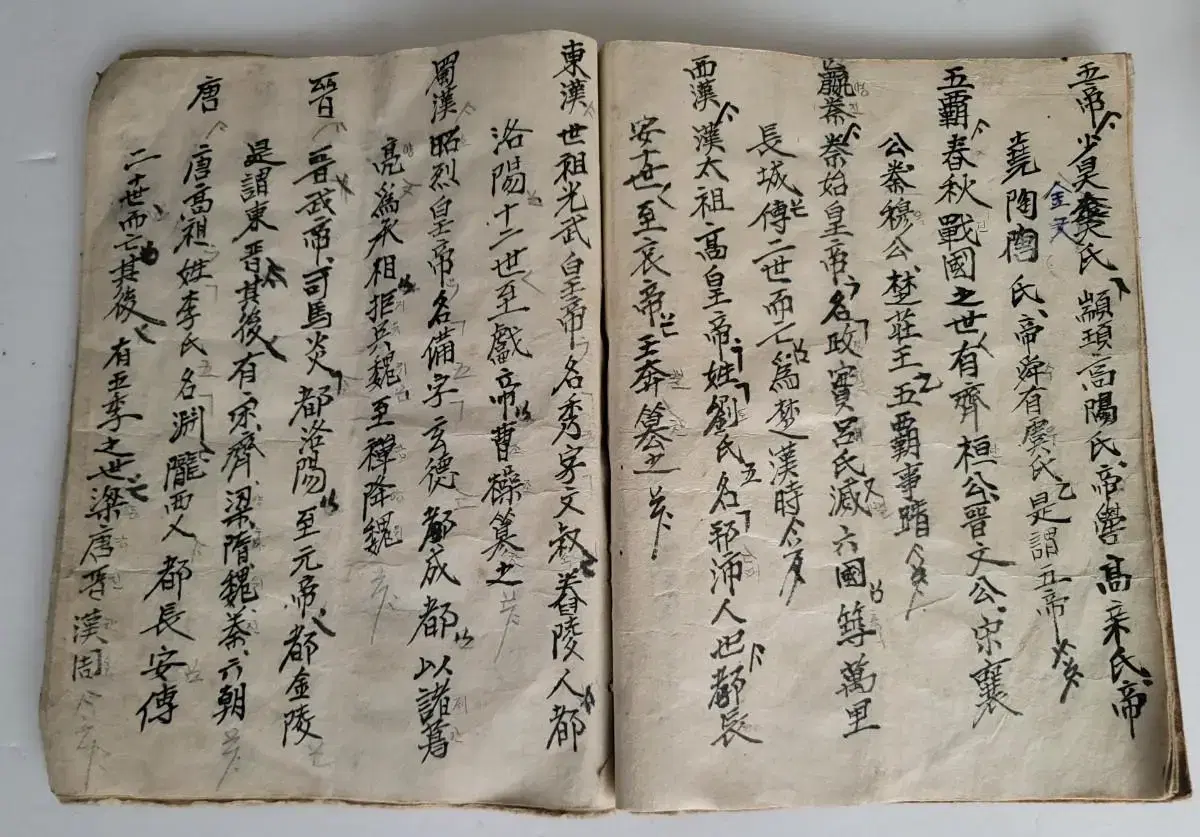 五帝 少昊金天氏 顓頊高陽氏 帝嚳高辛氏 帝
堯陶陶氏 帝舜有虞氏 是謂五帝
五覇 春秋戰國之世 有齊桓公 晉文公 宋襄
公 秦穆公 楚莊王 五覇事
嬴秦 秦始皇帝 名政 實呂氏 滅六國 築萬里
長城 傳二世而亡 爲楚漢時
西漢 漢太祖高皇帝 姓劉氏 名邦 沛人也 都長
安 十世至哀帝 王莽簒之
東漢 世祖光武皇帝 名秀 字文叔 舂陵人 都
洛陽 十二世至獻帝 曹操簒之
蜀漢 昭烈皇帝 名備 字玄德 都成都 以諸葛
亮爲丞相 拒兵魏 至禪降魏
晉 晉武帝 司馬炎 都洛陽 至元帝 都金陵
是謂東晋 其後有宋齊梁隋魏秦 六朝
唐 唐高祖 姓李氏 名淵 隴西人 都長安 傳
二十世而亡 其後有五季之世 梁唐晋漢周